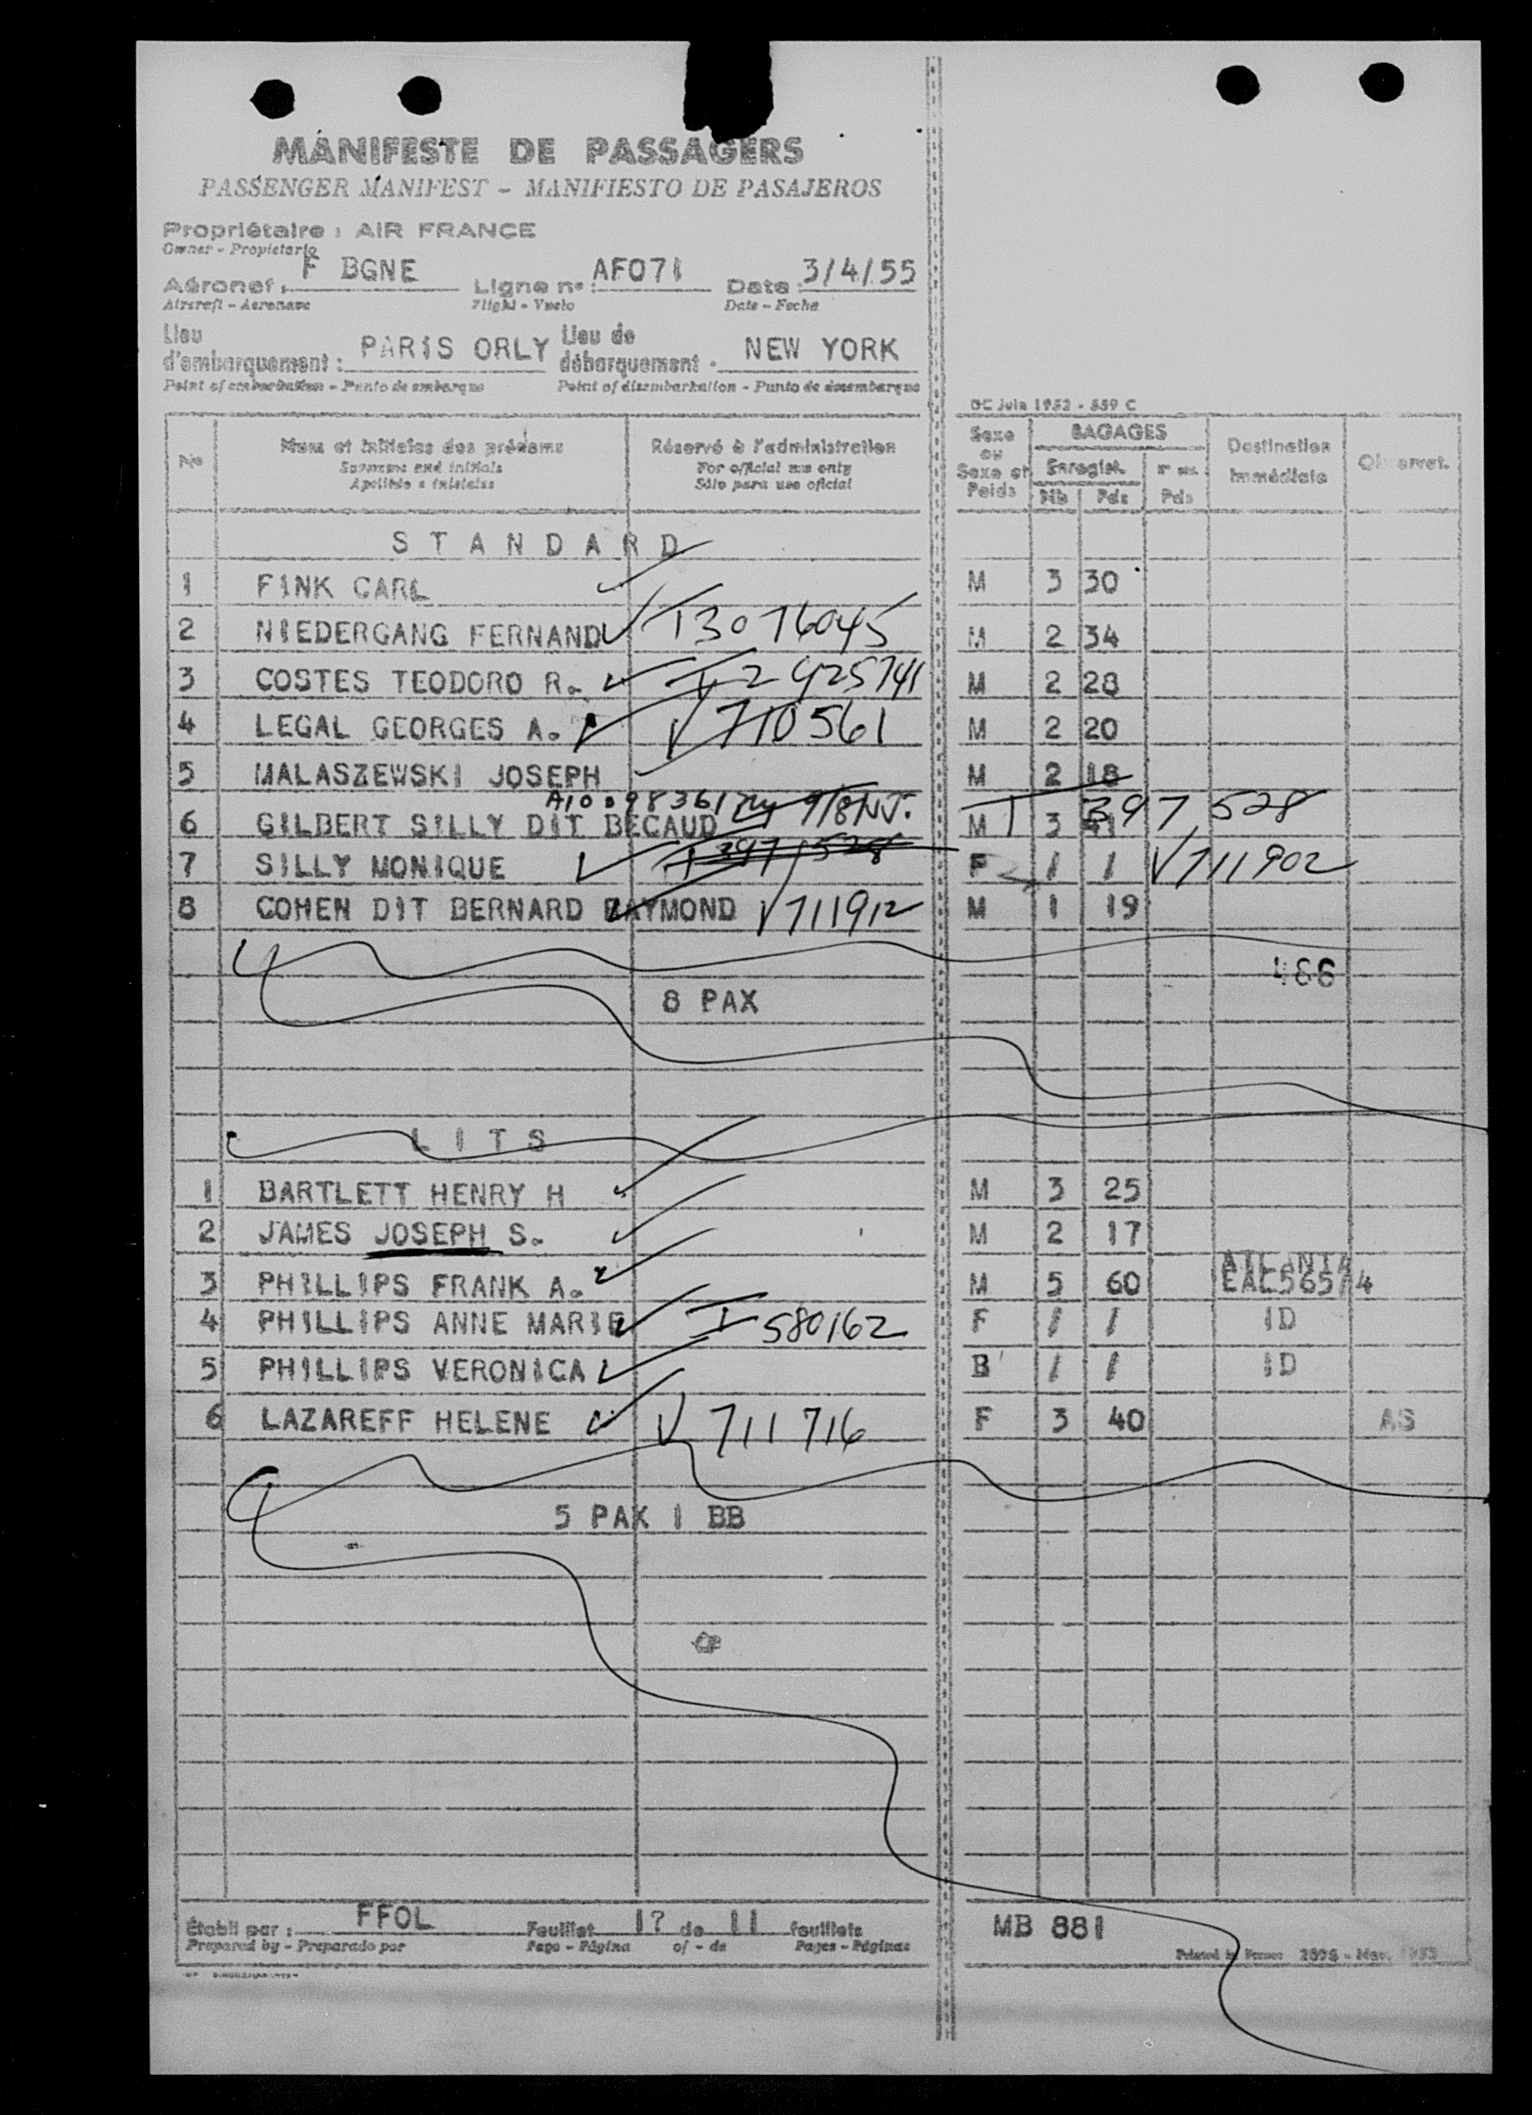 MANIFESTE DE PASSAGERS
PASSENGER MANIFEST - MANIFIESTO DE PASAJEROS
Propriétaire : AIR FRANCE
Owner - Propietario
Aéronef : F BGNE Ligne n° : AF071 Date : 3/4/55
Aircraft - Aeronave Flight - Vuelo Date - Fecha
Lieu d'embarquement : PARIS ORLY Lieu de débarquement : NEW YORK
Point of embarkation - Punto de embarque Point of disembarkation - Punto de desembarque
DC Juin 1952 - 559 C
No Noms et initiales des prénoms Réservé à l'administration Sexe ou Sexe et Poids BAGAGES Destination immédiate Observat.
Surname and initials For official use only Enregist.
Apellido e iniciales Sólo para uso oficial Nb Pds Pds
STANDARD
1 FINK CARL M 3 30
2 NIEDERGANG FERNAND I 3076045 M 2 34
3 COSTES TEODORO R. I 2925741 M 2 28
4 LEGAL GEORGES A. V 710561 M 2 20
5 MALASZEWSKI JOSEPH M 2 18
A10098361 9/8 NJ.
6 GILBERT SILLY DIT BECAUD M 3 41 I 397,528
7 SILLY MONIQUE I 397,528 F / / V711902
8 COHEN DIT BERNARD RAYMOND V711912 M 1 19
486
8 PAX
LITS
1 BARTLETT HENRY H M 3 25
2 JAMES JOSEPH S. M 2 17
3 PHILLIPS FRANK A. M 5 60 ATLANTA EAL565/4
4 PHILLIPS ANNE MARIE I 580162 F / / ID
5 PHILLIPS VERONICA B / / ID
6 LAZAREFF HELENE V 711716 F 3 40 AS
5 PAX 1 BB
Établi par : FFOL Feuillet 1? de 11 feuillets MB 881
Prepared by - Preparado por Page - Página of - de Pages - Páginas